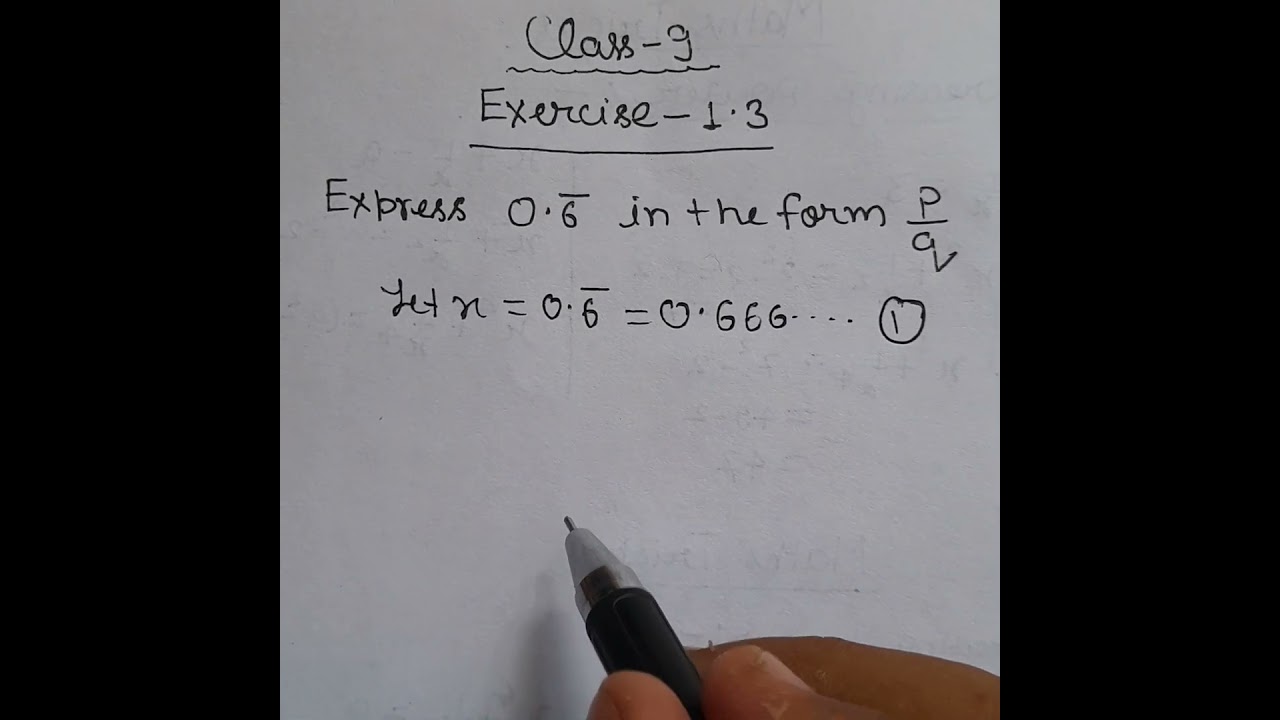 Class-9
Exercise-1.3
Express 0.6̅ in the form p/q
Let x = 0.6̅ = 0.666.... ①